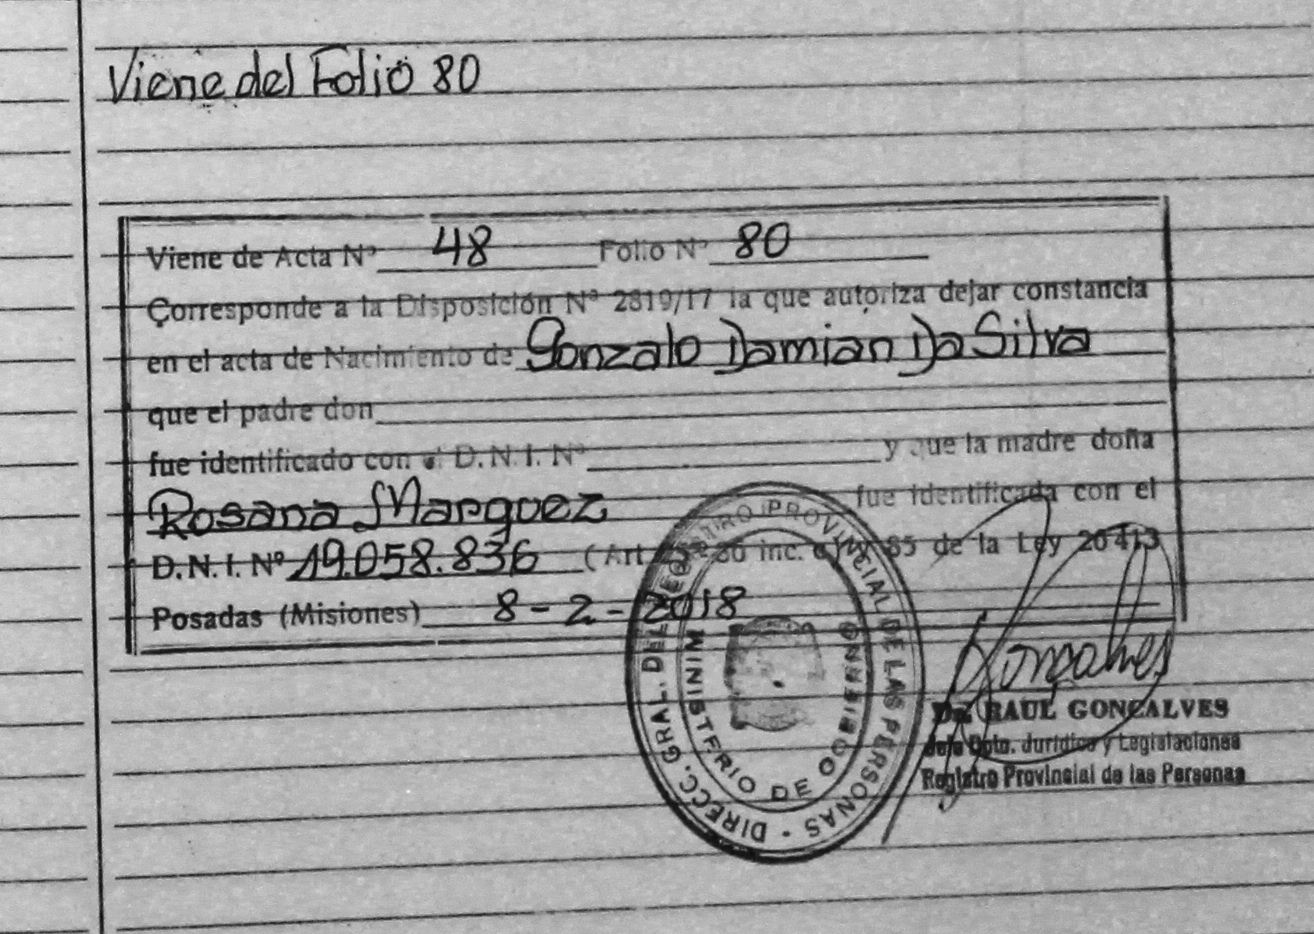 Viene del Folio 80
Viene de Acta Nº 48 Folio Nº 80
Corresponde a la Disposición Nº 2819/17 la que autoriza dejar constancia
en el acta de Nacimiento de Gonzalo Damian Da Silva
que el padre don
fue identificado con el D.N.I. Nº y que la madre doña
Rosana Marquez fue identificada con el
D.N.I. Nº 19.058.836 (Art. inc. c) y 85 de la Ley 20413
Posadas (Misiones) 8-2-2018
DIRECC. GRAL. DEL REGISTRO PROVINCIAL DE LAS PERSONAS
MINISTERIO DE GOBIERNO
Gonçalves
Dr. RAUL GONÇALVES
Jefe Dpto. Jurídico y Legislaciones
Registro Provincial de las Personas